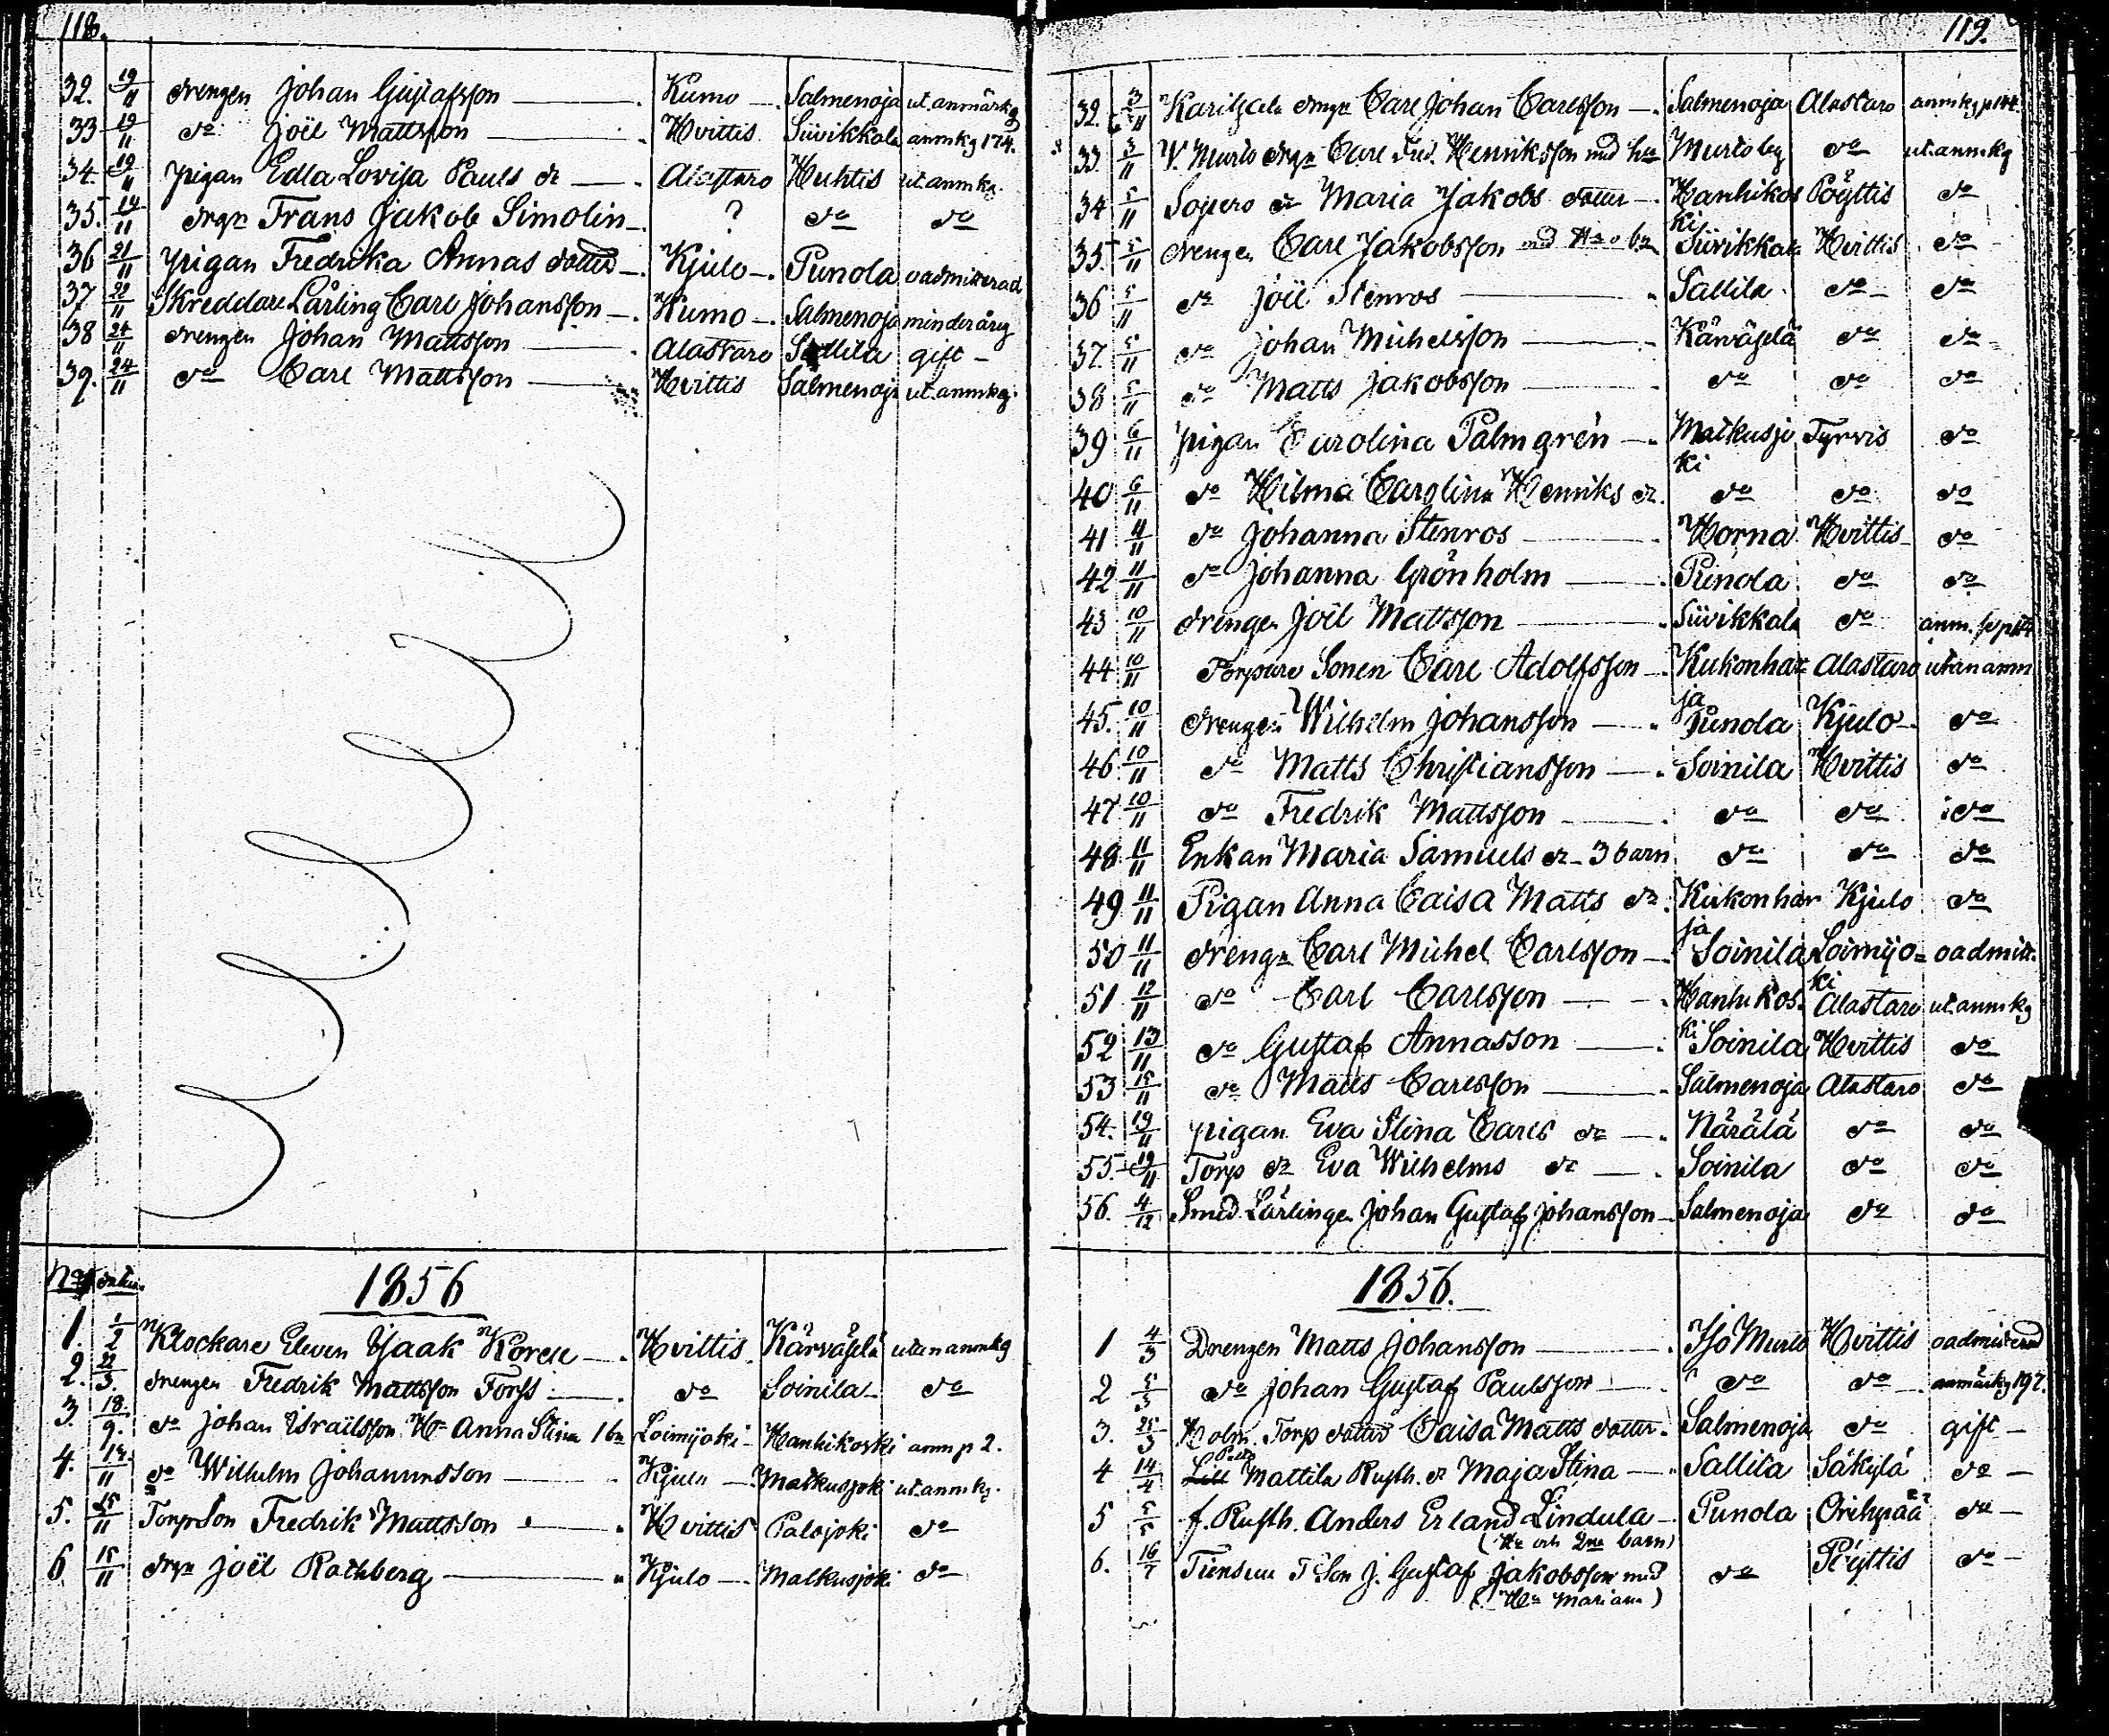 118.
32. 19/11 drengen Johan Gustafsson — Kumo — Salmenoja ut. anmärkg
33 19/11 do Joël Mattsson — Hvittis Siivikkala anmkg 174.
34. 19/11 pigan Edla Lovisa Pauls dr — Alastaro Huhtis ut anmkg.
35. 14/11 drgn Frans Jakob Simolin — ? do do
36 21/11 pigan Fredrika Annas dotter — Kjulo — Punola oadmitterad
37 22/11 Skreddare Lärling Carl Johansson — Kumo — Salmenoja minderårig
38 24/11 drengen Johan Mattsson — Alastaro Sallila gift —
39. 24/11 do Carl Mattsson — Hvittis Salmenoja ut. anmkg.
No datum. 1856
1. 1/2 Klockare Eleven Isaak — Hvittis Kärväselä utan anmkg
2. 22/3. drengen Fredrik Mattsson Forss — do Soinila do
3. 18./9. do Johan Israilsson Hu Anna Stina 1 bn Loimijoki Hanhikoski anm p 2.
4. 14/11 do Wilhelm Johannesson — Kjulo — Matkusjoki ut. anmkg.
5. 25/11 Torp Son Fredrik Mattsson — Hvittis Palojoki do
6. 15/11 drgn Joël Rothberg — Kjulo — Matkusjoki do
119.
32. 3/11 Karitzala drgn Carl Johan Carlsson — Salmenoja Alastaro anmkg p 174.
33. 3/11 V. Murto drgn Carl Fred. Henriksson med hu Murto by do ut. anmkg
34 5/11 Sopero dr Maria Jakobs dotter — Hanhikoski Pöyttis do
35. 5/11 drengen Carl Jakobsson med Hu o bn Siivikkala Hvittis do
36 5/11 do Joël Stenros — Sallila do do
37. 5/11 do Johan Michelsson — Kärväselä do do
38 5/11 do Matts Jakobsson — do do do
39 6/11 pigan Carolina Palmgrén — Matkusjoki Tyrvis do
40 6/11 do Hilma Carolina Henriks dr. do do do
41 11/11 do Johanna Stenros — Horna Hvittis do
42 11/11 do Johanna Grönholm — Punola do do
43 10/11 drengen Joël Mattsson — Siivikkala do anm. se p 174
44 10/11 Torpare Sonen Carl Adolfsson — Kukonharja Alastaro utan anm
45. 10/11 drengen Wilhelm Johansson — Punola Kjulo do
46 10/11 do Matts Christiansson — Soinila Hvittis do
47 10/11 do Fredrik Mattsson — do do do
48 11/11 Enkan Maria Samuels dr — 3 barn do do do
49 11/11 Pigan Anna Caisa Matts dr. Kukonharja Kjulo do
50 11/11 drengn Carl Michel Carlsson — Soinila Loimijoki oadmitt.
51 12/11 do Carl Carlsson — Hanhikoski Alastaro ut. anmkg
52 13/11 do Gustaf Annasson — Soinila Hvittis do
53 15/11 do Matts Carlsson — Salmenoja Alastaro do
54. 19/11 pigan Eva Stina Carls dr — Närälä do do
55. 19/11 Torp dr Eva Wilhelms dr — Soinila do do
56. 4/12 Smed Lärlingen Johan Gustaf Johansson — Salmenoja do do
1856.
1 4/3 Drengen Matts Johansson — Iso Murto Hvittis oadmitterad
2 5/3 do Johan Gustaf Paulsson — do do anmärkg 197.
3. 25/3 Holm. Torp dotter Caisa Matts dotter. Salmenoja do gift —
4 14/4 Mattila Rusth. dr Maja Stina — Sallila Säkylä do —
5 5/5 f. Rusth. Anders Erland Lindula — Punola Orihpää do —
(Hu och 2ne barn)
6. 16/7 Tiensuu T. Son J. Gustaf Jakobsson med do Pöyttis do —
(Hu Mariana)